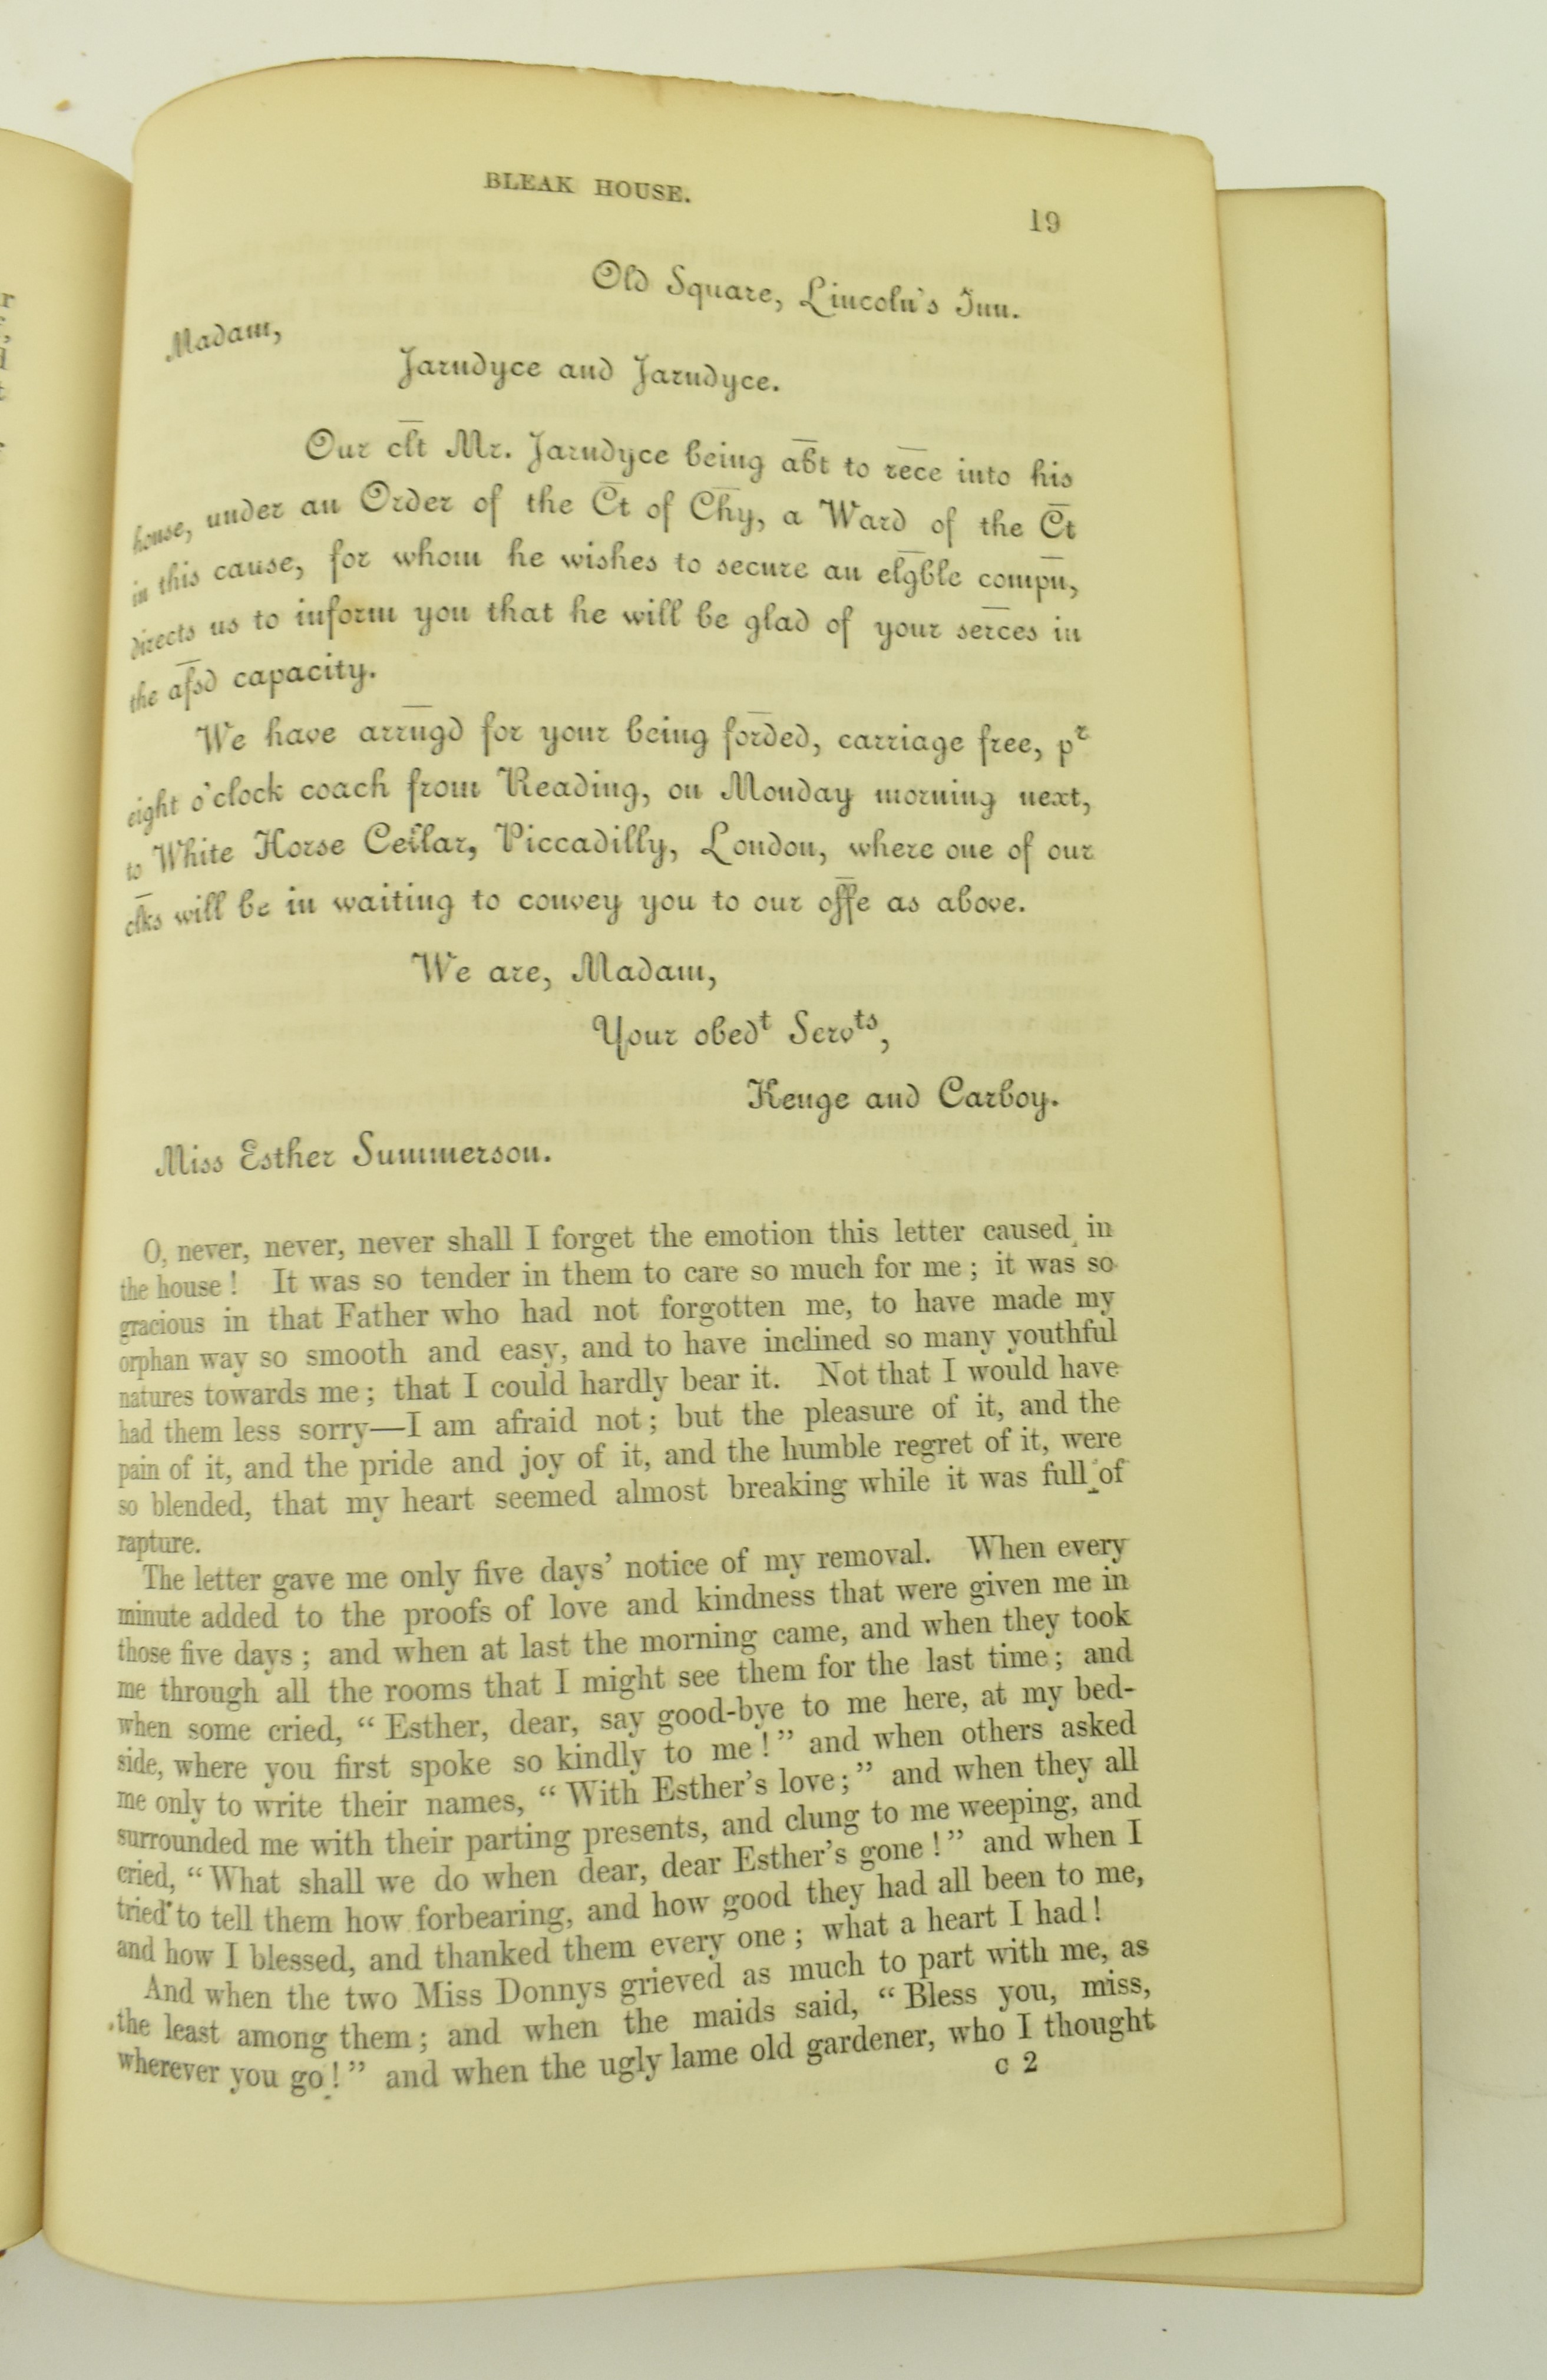 BLEAK HOUSE.
19
Old Square, Lincoln's Inn.
Madam,
Jarndyce and Jarndyce.
Our cl̅t Mr. Jarndyce being ab̅t to rec̅e into his
house, under an Order of the C̅t of Ch̅y, a Ward of the C̅t
in this cause, for whom he wishes to secure an elg̅ble compn̅,
directs us to inform you that he will be glad of your ser̅ces in
the afs̅d capacity.
We have arrn̅gd for your being for̅ded, carriage free, pʳ
eight o'clock coach from Reading, on Monday morning next,
to White Horse Cellar, Piccadilly, London, where one of our
cl̅ks will be in waiting to convey you to our off̅e as above.
We are, Madam,
Your obedᵗ Servᵗˢ,
Kenge and Carboy.
Miss Esther Summerson.
O, never, never, never shall I forget the emotion this letter caused in
the house! It was so tender in them to care so much for me; it was so
gracious in that Father who had not forgotten me, to have made my
orphan way so smooth and easy, and to have inclined so many youthful
natures towards me; that I could hardly bear it. Not that I would have
had them less sorry—I am afraid not; but the pleasure of it, and the
pain of it, and the pride and joy of it, and the humble regret of it, were
so blended, that my heart seemed almost breaking while it was full of
rapture.
The letter gave me only five days' notice of my removal. When every
minute added to the proofs of love and kindness that were given me in
those five days; and when at last the morning came, and when they took
me through all the rooms that I might see them for the last time; and
when some cried, "Esther, dear, say good-bye to me here, at my bed-
side, where you first spoke so kindly to me!" and when others asked
me only to write their names, "With Esther's love;" and when they all
surrounded me with their parting presents, and clung to me weeping, and
cried, "What shall we do when dear, dear Esther's gone!" and when I
tried to tell them how forbearing, and how good they had all been to me,
and how I blessed, and thanked them every one; what a heart I had!
And when the two Miss Donnys grieved as much to part with me, as
the least among them; and when the maids said, "Bless you, miss,
wherever you go!" and when the ugly lame old gardener, who I thought
C 2